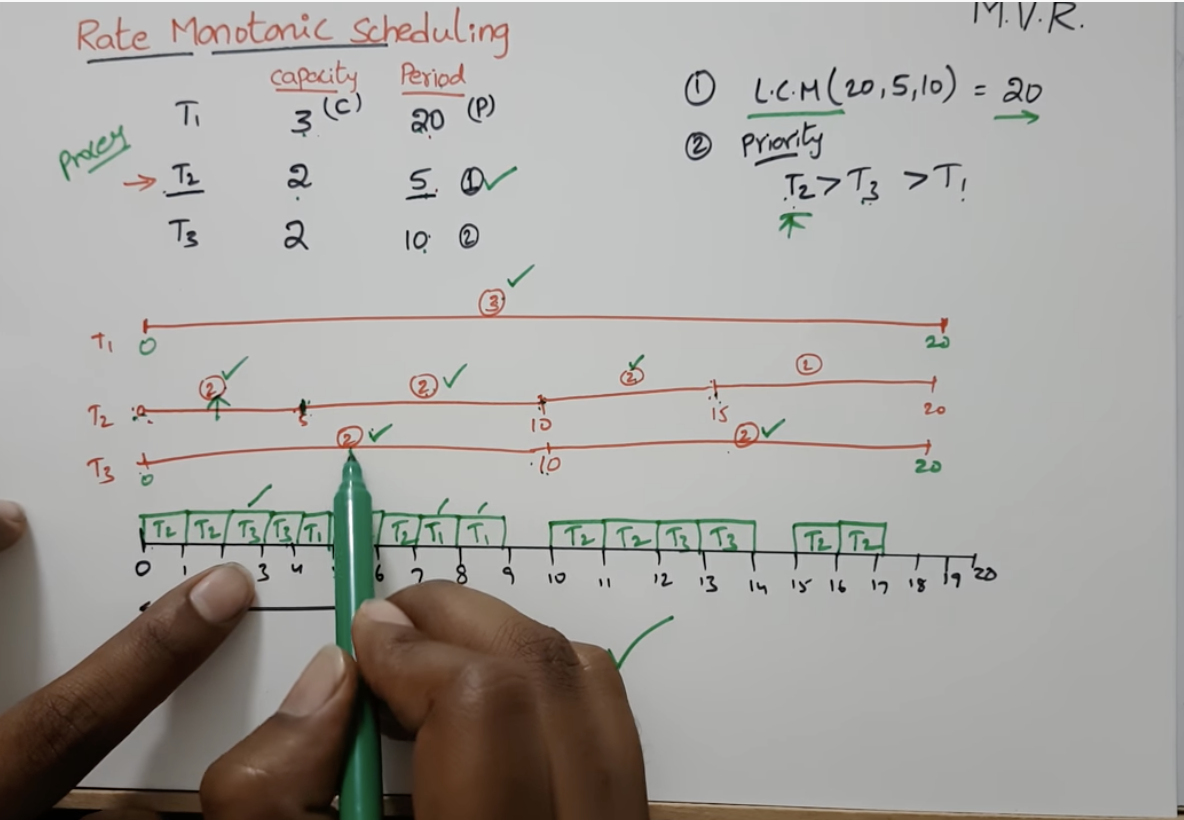 M.V.R.
Rate Monotonic Scheduling
capacity Period
T1 3 (C) 20 (P)
Process
→ T2 2 5 ① ✓
T3 2 10 ②
① L.C.M (20, 5, 10) = 20
② Priority
T2 > T3 > T1
③ ✓
T1 0 20
② ✓ ② ✓ ② ✓ ②
T2 0 5 10 15 20
② ✓ ② ✓
T3 0 10 20
T2 T2 T3 T3 T1 T2 T1 T1 T2 T2 T3 T3 T2 T2
0 1 3 4 6 7 8 9 10 11 12 13 14 15 16 17 18 19 20